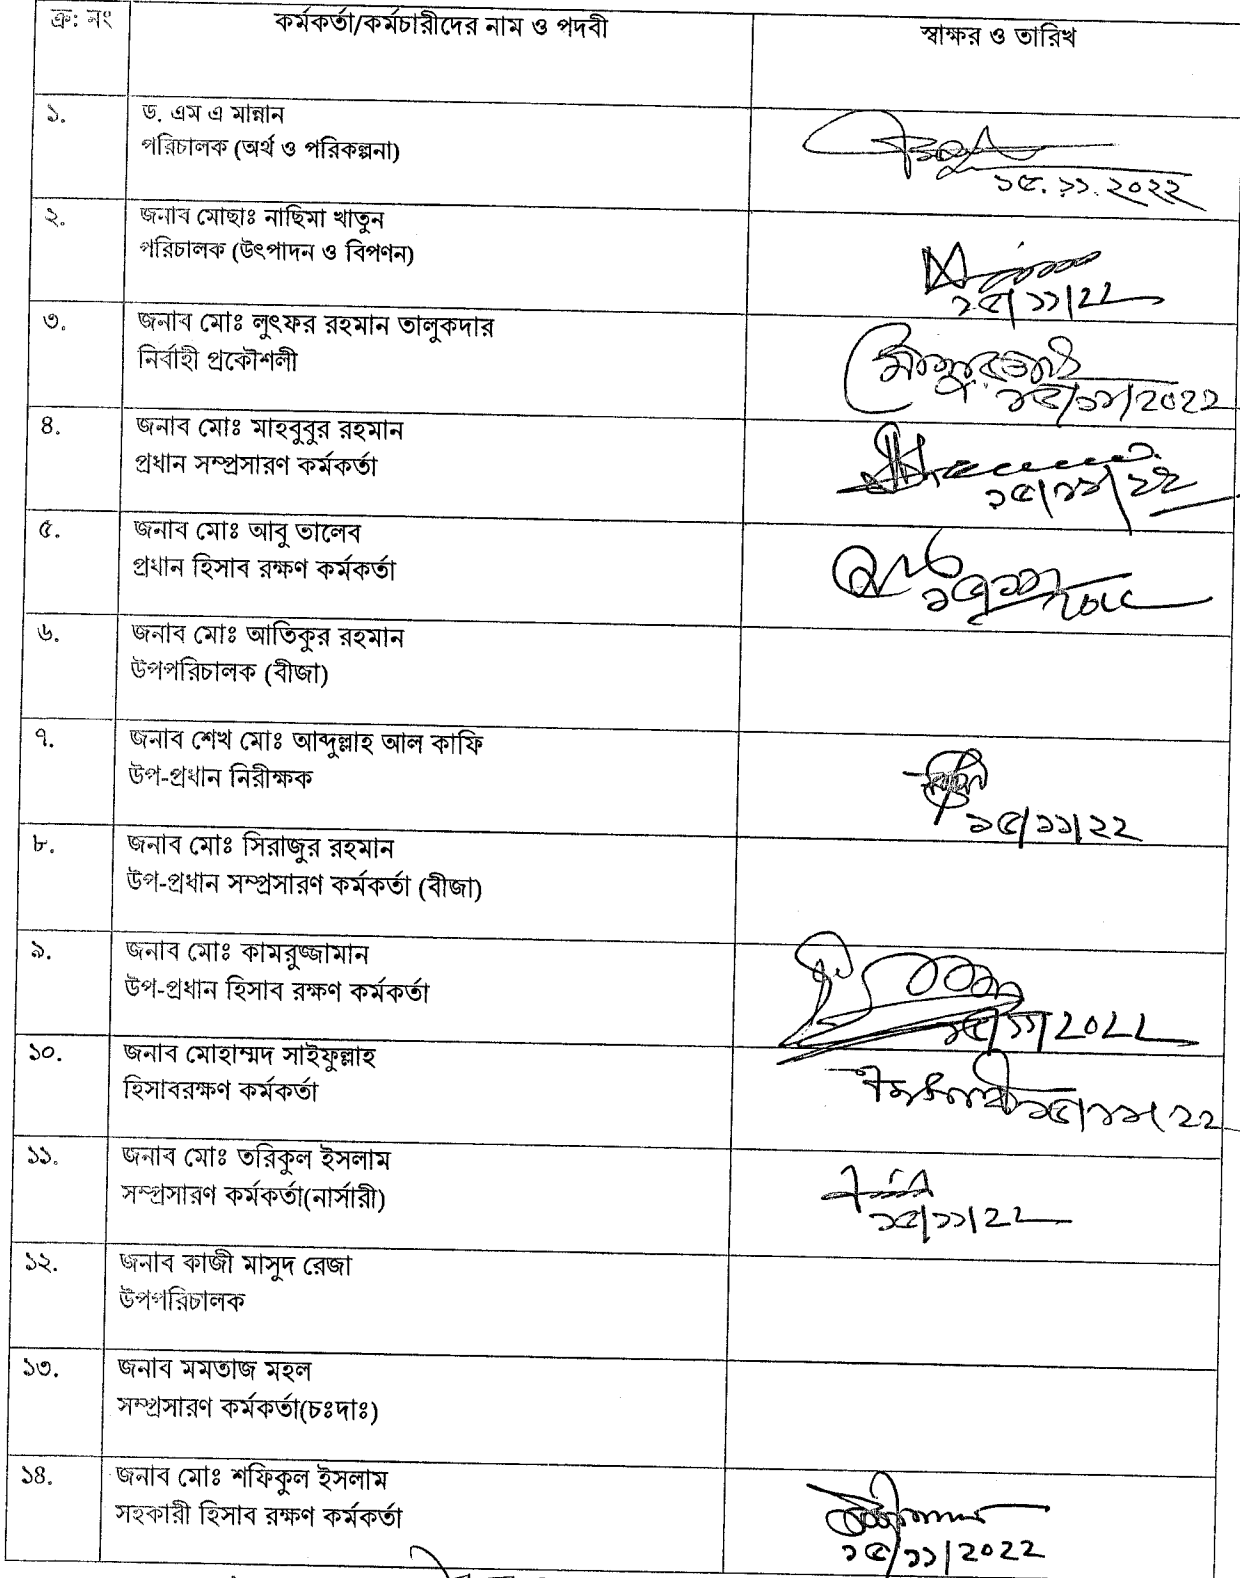 ক্র: নং কর্মকর্তা/কর্মচারীদের নাম ও পদবী স্বাক্ষর ও তারিখ
১. ড. এম এ মান্নান
পরিচালক (অর্থ ও পরিকল্পনা)
১৫.১১.২০২২
২. জনাব মোছাঃ নাছিমা খাতুন
পরিচালক (উৎপাদন ও বিপণন)
১৫/১১/২২
৩. জনাব মোঃ লুৎফর রহমান তালুকদার
নির্বাহী প্রকৌশলী
১৫/১১/২০২২
৪. জনাব মোঃ মাহবুবুর রহমান
প্রধান সম্প্রসারণ কর্মকর্তা
১৫/১১/২২
৫. জনাব মোঃ আবু তালেব
প্রধান হিসাব রক্ষণ কর্মকর্তা
৬. জনাব মোঃ আতিকুর রহমান
উপপরিচালক (বীজা)
৭. জনাব শেখ মোঃ আব্দুল্লাহ আল কাফি
উপ-প্রধান নিরীক্ষক
১৫/১১/২২
৮. জনাব মোঃ সিরাজুর রহমান
উপ-প্রধান সম্প্রসারণ কর্মকর্তা (বীজা)
৯. জনাব মোঃ কামরুজ্জামান
উপ-প্রধান হিসাব রক্ষণ কর্মকর্তা
১৫/১১/২০২২
১০. জনাব মোহাম্মদ সাইফুল্লাহ
হিসাবরক্ষণ কর্মকর্তা
১৫/১১/২২
১১. জনাব মোঃ তরিকুল ইসলাম
সম্প্রসারণ কর্মকর্তা(নার্সারী)
১৫/১১/২২
১২. জনাব কাজী মাসুদ রেজা
উপপরিচালক
১৩. জনাব মমতাজ মহল
সম্প্রসারণ কর্মকর্তা(চঃদাঃ)
১৪. জনাব মোঃ শফিকুল ইসলাম
সহকারী হিসাব রক্ষণ কর্মকর্তা
১৫/১১/২০২২